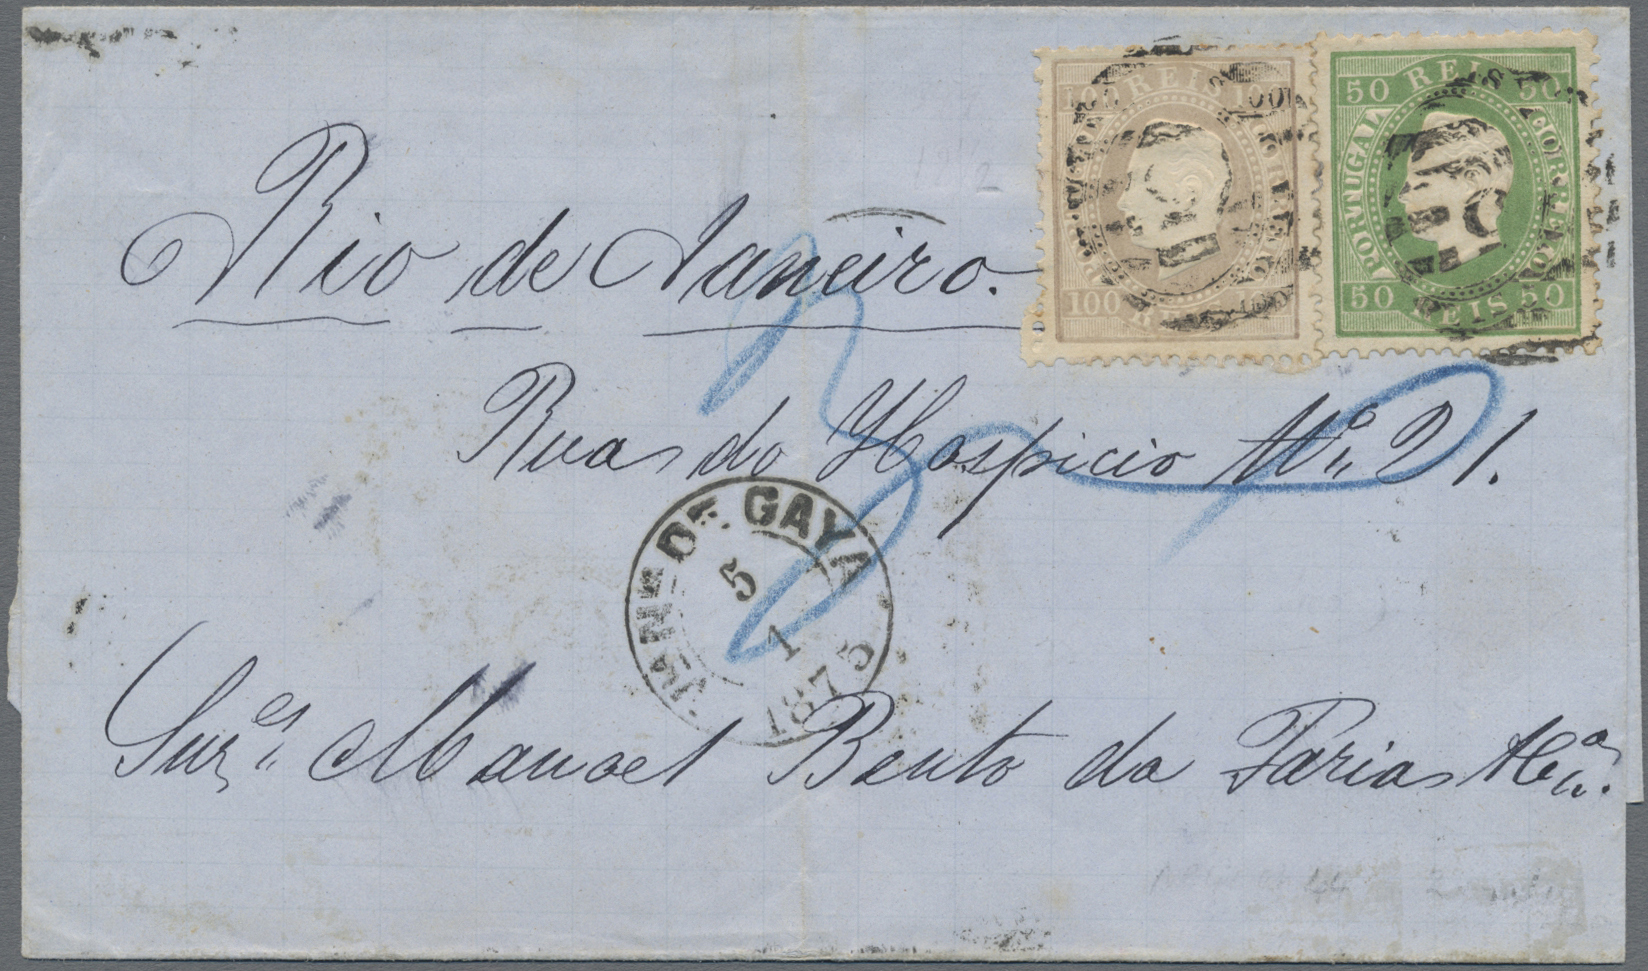 100 REIS 100
PORTUGAL CORREIO
100 REIS
50 REIS 50
PORTUGAL CORREIO
50 REIS 50
Rio de Janeiro.
Rua do Hospicio Nº 21.
Vª Nª DE GAYA
5
1
1875
Snr.es Manoel Bento da Faria